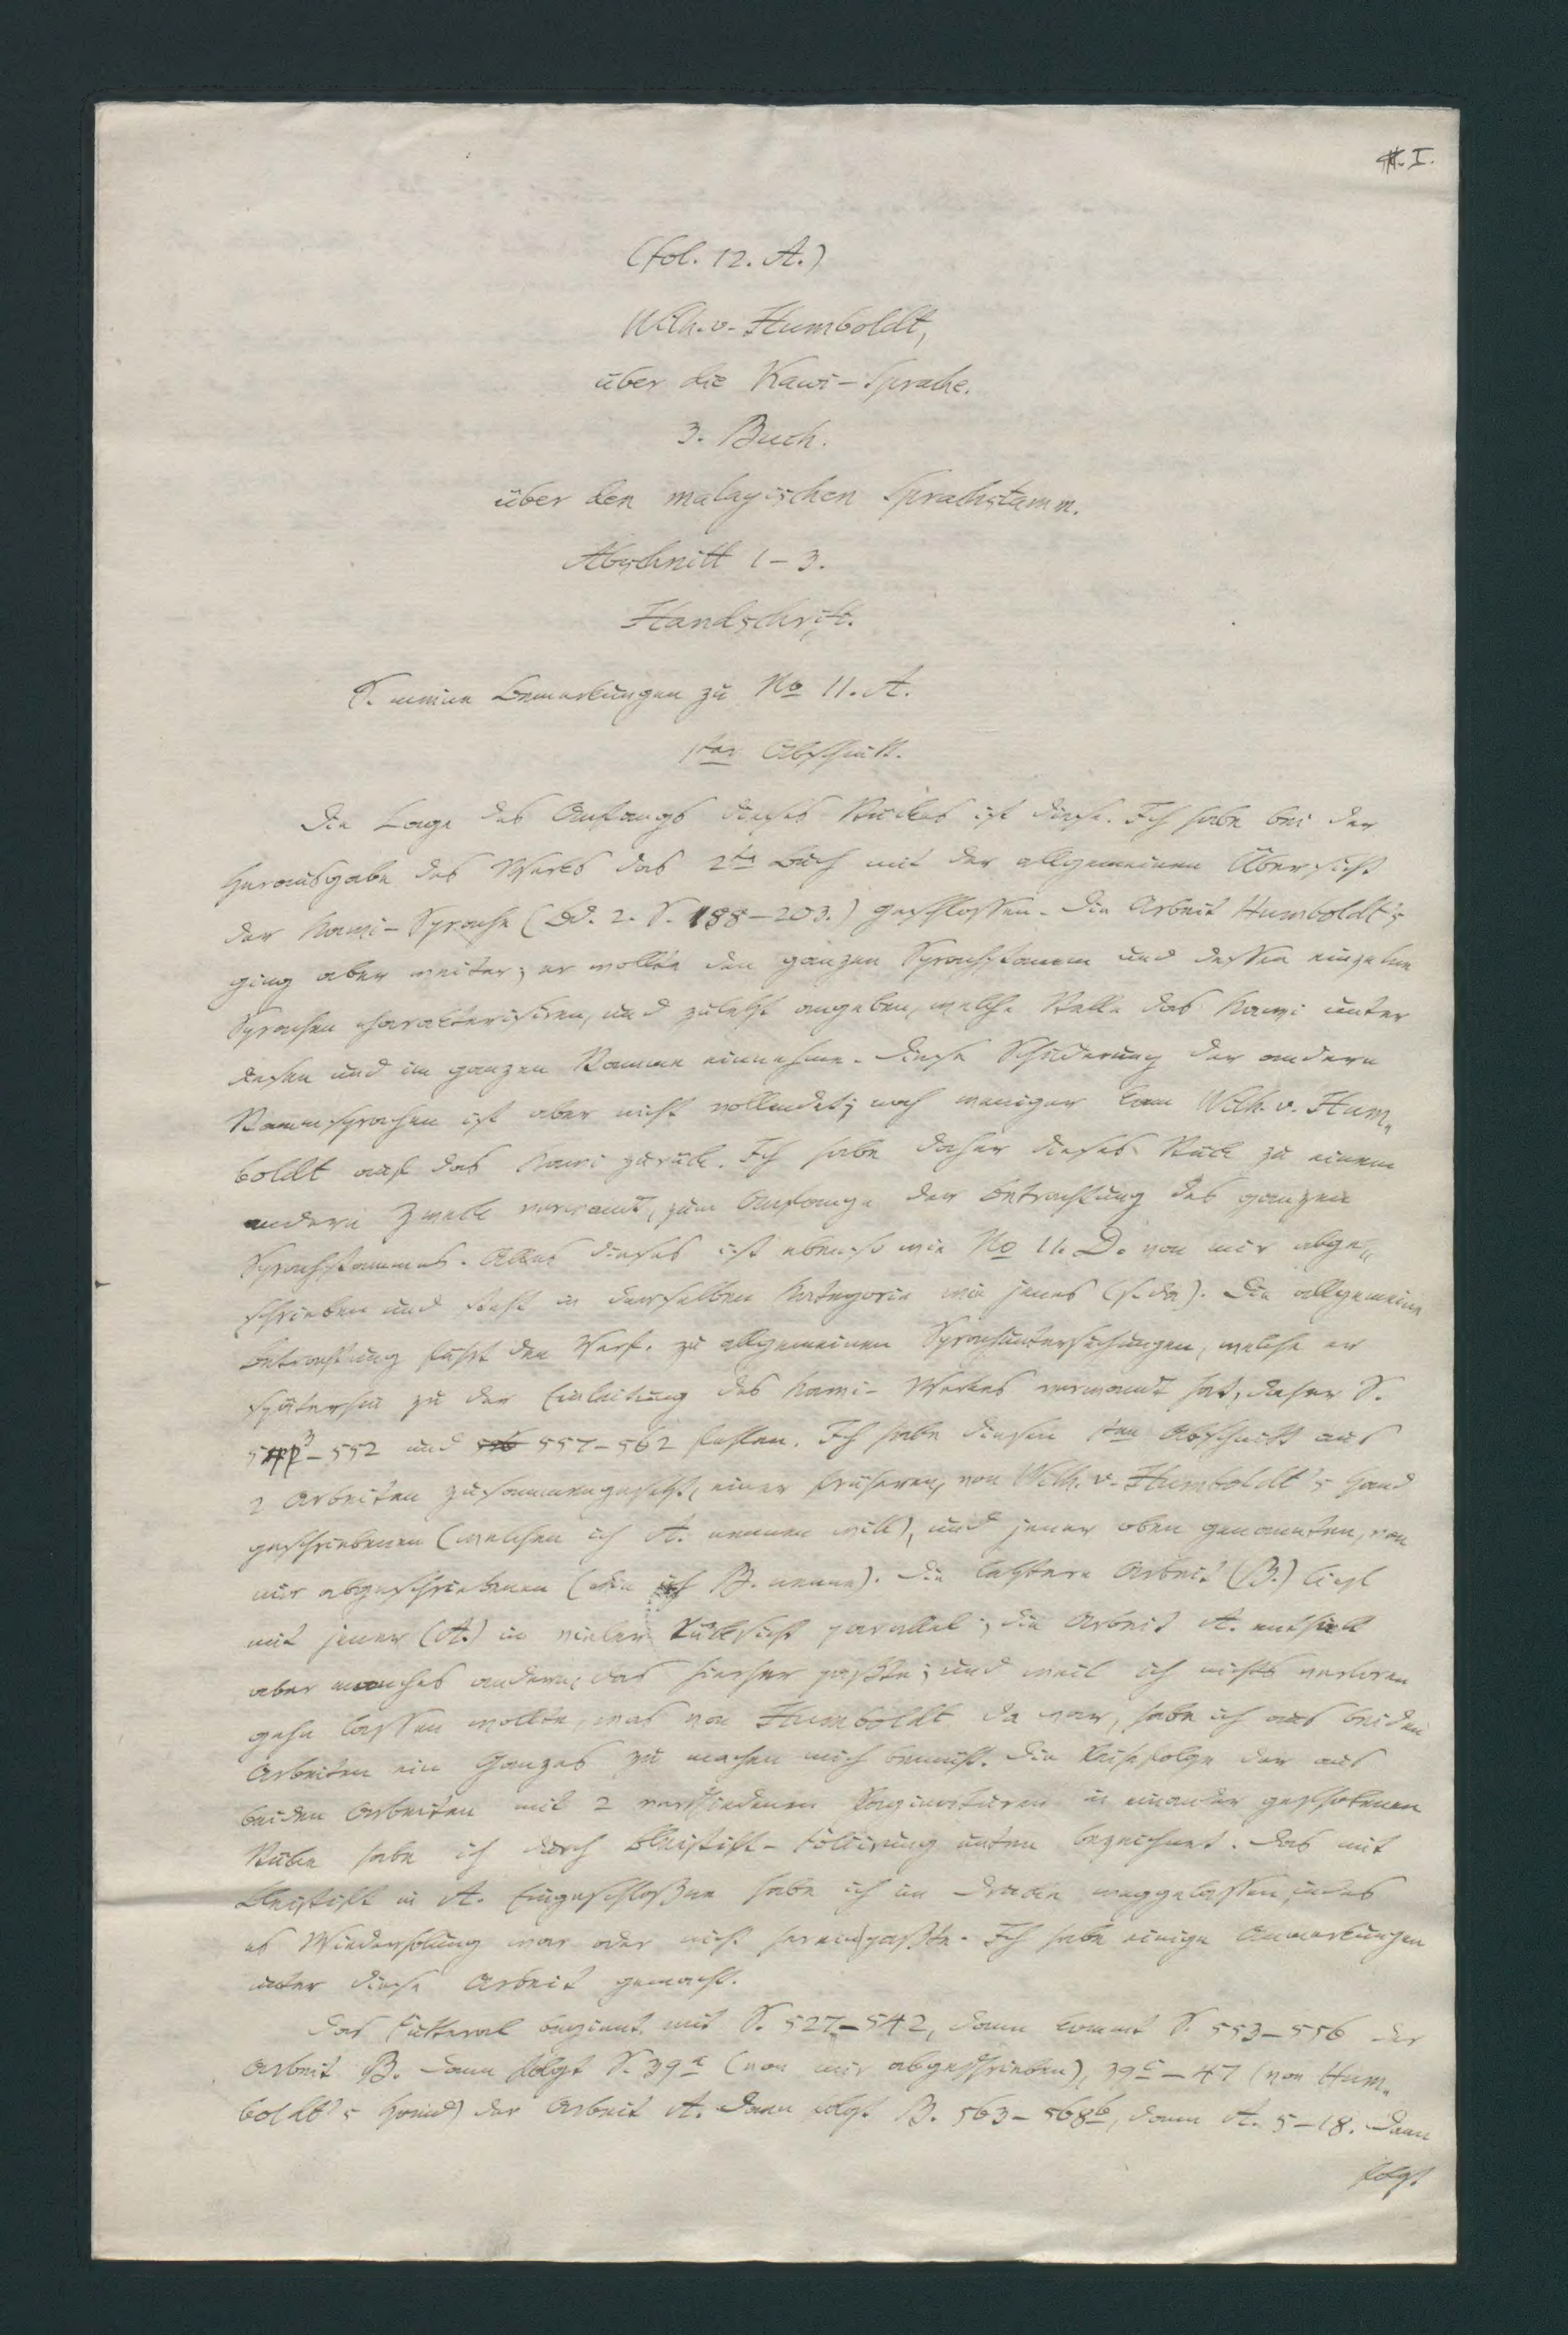 I.
(fol. 12. A.)
Wilh. v. Humboldt,
über die Kawi-Sprache.
3. Buch.
über den malayischen Sprachstamm.
Abschnitt 1-3.
Handschrift.
S. meine Bemerkungen zu No 11. A.
1ter Abschnitt.
Die Lage des Anfangs dieses Stückes ist diese. Ich habe bei der
Herausgabe des Werks das 2te Buch mit der allgemeinen Übersicht
der Kawi-Sprache (Bd. 2. S. 188-203.) geschlossen. Die Arbeit Humboldt's
ging aber weiter; er wollte den ganzen Sprachstamm und dessen einzelne
Sprachen charakterisiren, und zuletzt angeben, welche Stelle das Kawi unter
diesen und im ganzen Stamme einnehme. Diese Schilderung der andern
Stammsprachen ist aber nicht vollendet; noch weniger kam Wilh. v. Hum-
boldt auf das Kawi zurück. Ich habe daher dieses Stück zu einem
andern Zweck verwandt, zum Anfange der Betrachtung des ganzen
Sprachstammes. Alles dieses ist ebenso wie No 11. D. von mir abge-
schrieben und steht in derselben Kategorie wie jenes (s. da). Die allgemeine
Betrachtung führt den Verf. zu allgemeinen Sprachuntersuchungen, welche er
späterhin zu der Einleitung des Kawi-Werkes verwandt hat; daher S.
543-552 und 557-562 fehlen. Ich habe diesen 1ten Abschnitt aus
2 Arbeiten zusammengesetzt, einer früheren, von Wilh. v. Humboldt's Hand
geschriebenen (welchen ich A. nennen will), und jener oben genannten, von
mir abgeschriebenen (die ich B. nenne). Die letztere Arbeit (B.) liegt
mit jener (A.) in vieler Rücksicht parallel; die Arbeit A. enthielt
aber manches andere, das hierher paßte; und weil ich nichts verloren
gehn lassen wollte, was von Humboldt da war, habe ich aus beiden
Arbeiten ein Ganzes zu machen mich bemüht. Die Reihefolge der aus
beiden Arbeiten mit 2 verschiedenen Paginaturen in einander geschobenen
Stücke habe ich durch Bleistift-Foliirung unten bezeichnet. Das mit
Bleistift in A. Eingeschloßne habe ich im Drucke weggelassen, indes
es Wiederholung war oder nicht hereinpaßte. Ich habe einige Anmerkungen
unter diese Arbeit gemacht.
Das Futteral beginnt mit S. 527-542, dann kommt S. 553-556 der
Arbeit B. Dann folgt S. 39a (von mir abgeschrieben), 39c-47 (von Hum-
boldt's Hand) der Arbeit A. Dann folgt B. 563-568b, dann A. 5-18. Dann
folgt